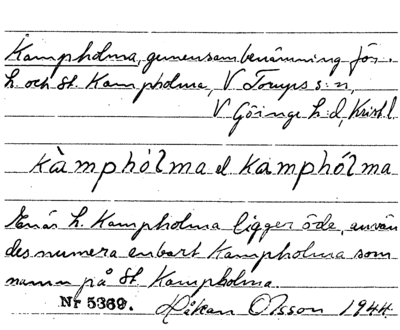 Kampholma, gemensam benämning för
L. och St. Kampholma, V Torups s:n,
V Göinge h:d, Krist. l.
kàmphólma el kamphólma
Enär L. Kampholma ligger öde, använ
des numera enbart Kampholma som
namn på St Kampholma.
Nr 5369. Håkan Olsson 1944.